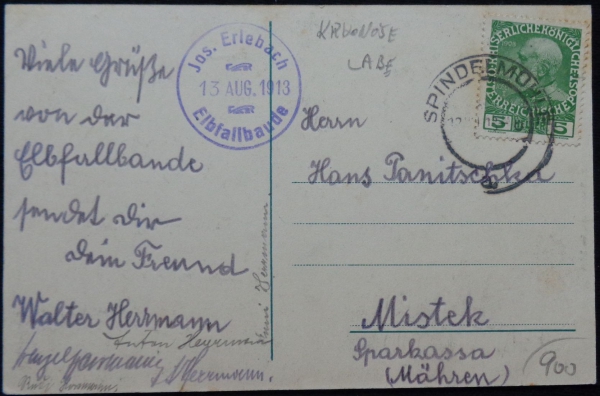 Viele Grüße
von der
Elbfallbaude
sendet dir
dein Freund
Walter Herrmann
Anton Herrmann
Herrmann.
Herrmann
Jos. Erlebach
13 AUG. 1913
Elbfallbaude
KRKONOŠE
LABE
SPINDELMÜHLE
5 5
Herrn
Hans Panitschka
Mistek
Sparkassa
(Mähren)
900